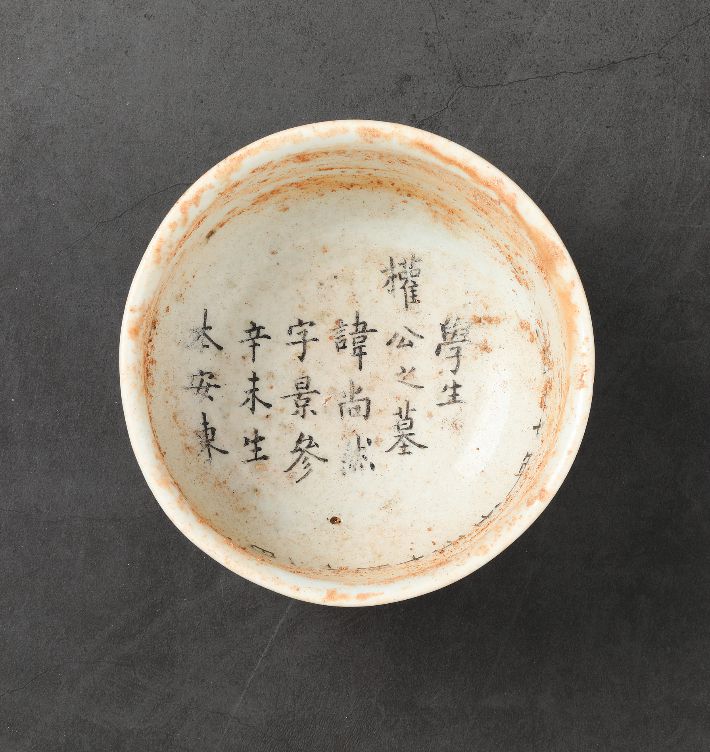 學生
權公之墓
諱尚
字景參
辛未生
本安東